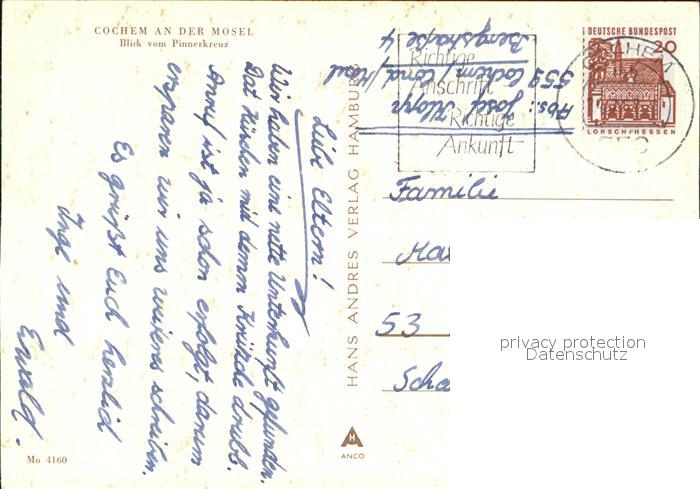 COCHEM AN DER MOSEL
Blick vom Pinnerkreuz
Liebe Eltern!
Wir haben eine nette Unterkunft gefunden.
Dat Hüsden mid demm Krützche drubb.
Anruf ist ja schon erfolgt, darum
ersparen wir uns weiteres schreiben.
Es grüßt Euch herzlich
Inge und
Ewald.
Mo 4160
HANS ANDRES VERLAG HAMBURG
ANCO
Abs.: Josef Klopp
559 Cochem / Cond / Mosel
Bergstraße 4
Richtige
Anschrift
Richtige
Ankunft
DEUTSCHE BUNDESPOST
20
LORSCH/HESSEN
COCHEM
559
Familie
53
privacy protection
Datenschutz